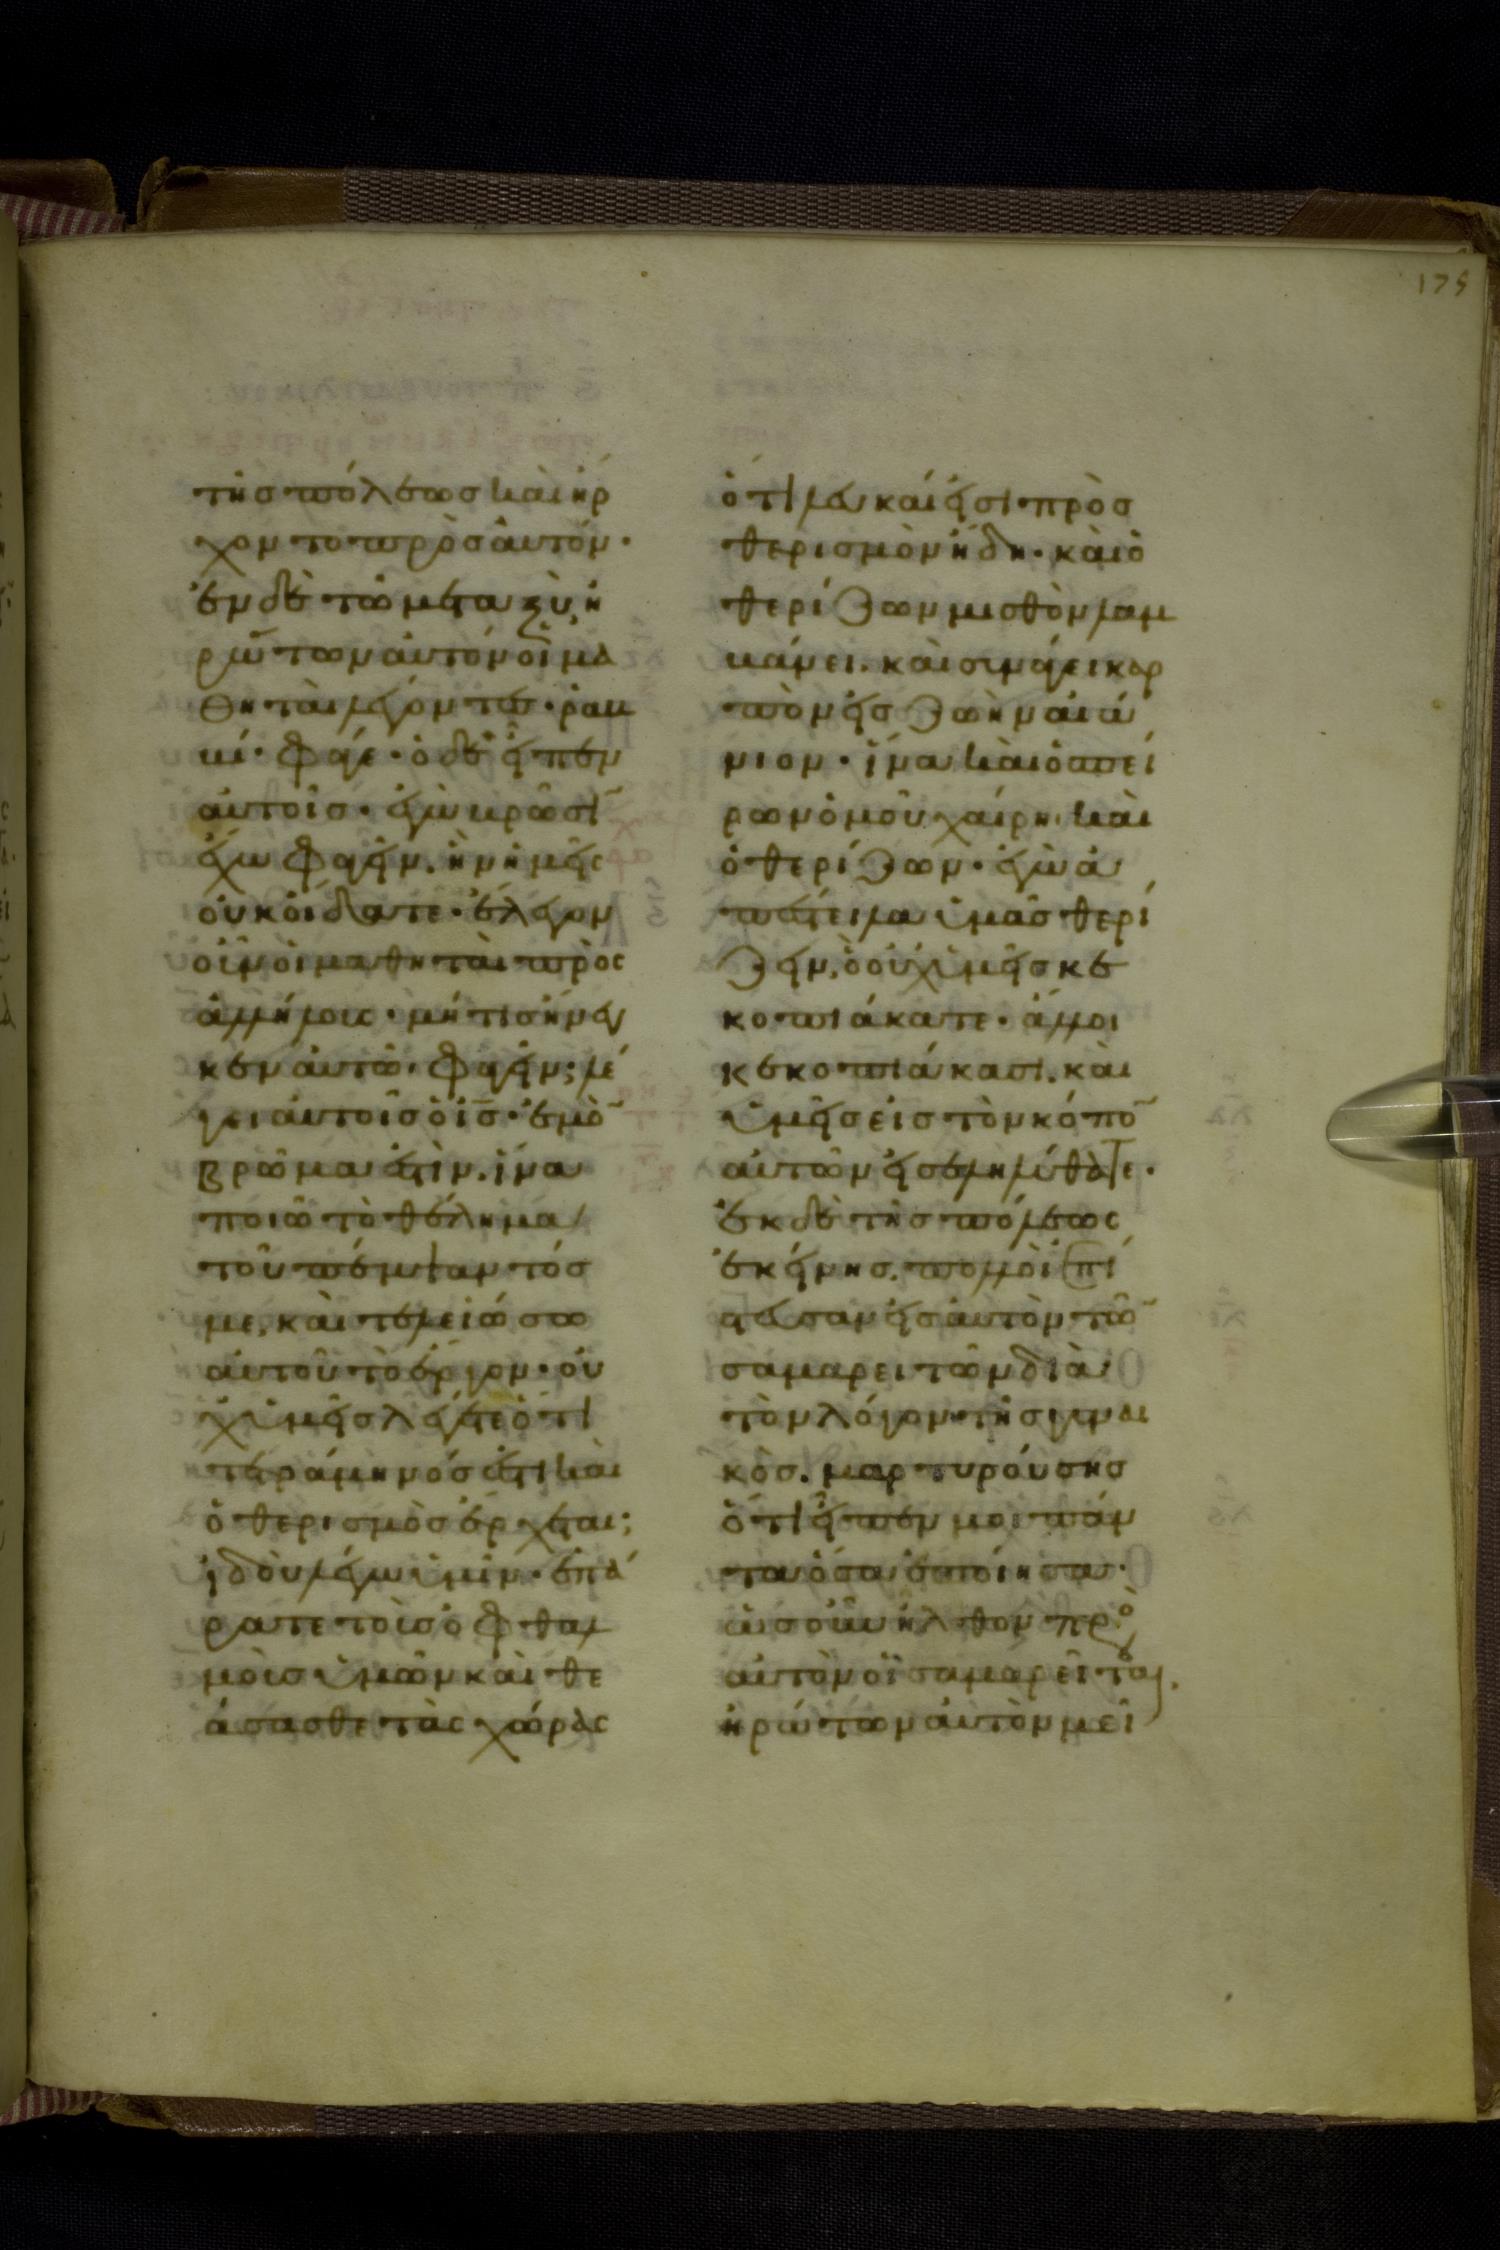 175
τῆσ πόλεωσ καὶ ἤρ
χοντο πρὸσ αὐτόν·
ἐν δὲ τῶ μεταξὺ ἠ
ρώτων αὐτὸν οἱ μα
θηταὶ λέγοντεσ· ραβ
βί· φάγε· ὁ δὲ εἶπεν
αὐτοῖσ· ἐγὼ βρῶσῖ
ἔχω φαγεῖν. ἣν ὑμεῖς
οὐκ οἴδατε· ἔλεγον
οὖν οἱ μαθηταὶ πρὸς
ἀλλήλους· μήτισ ἤνεγ
κεν αὐτῶ φαγεῖν; λέ
γει αὐτοῖσ ὁ ι̅σ̅· ἐμὸ̅
βρῶμα ἐστὶν. ἵνα
ποιῶ τὸ θέλημα
τοῦ πέμψαντόσ
με, καὶ τελειώσω
αὐτοῦ τὸ ἔργον· οὐ
χ ὑμεῖσ λέγετε ὅτι
τετράμηνόσ ἐστι καὶ
ὁ θερισμὸσ ἔρχεται;
ἰδοὺ λέγω ὑμῖν· ἐπά
ρατε τοὺσ ὀφθαλ
μοὺσ ὑμῶν καὶ θε
άσασθε τὰς χώρας
ὅτι λευκαί εἰσι πρὸσ
θερισμὸν ἤδη· καὶ ὁ
θερίζων μισθὸν λαμ
βάνει. καὶ συνάγει καρ
πὸν εἰσ ζωὴν αἰώ
νιον· ἵνα καὶ ὁ σπεί
ρων ὁμοῦ χαίρη καὶ
ὁ θερίζων· ἐγὼ ἀ
πέστειλα ὑμᾶσ θερί
ζειν, ὃ οὐχ ὑμεῖσ κε
κοπιάκατε· ἄλλοι
κεκοπιάκασι. καὶ
ὑμεῖσ εἰσ τὸν κόπο̅
αὐτῶν εἰσεληλύθατε·
ἐκ δὲ τῆσ πόλεως
ἐκείνησ. πολλοὶ ἐπί
στευσαν εἰσ αὐτὸν τῶ̅
σαμαρειτῶν διὰ
τὸν λόγον τῆσ γυναι
κὸσ. μαρτυρούσησ
ὅτι εἶπέν μοι πάν
τα ὅσα ἐποίησα·
ὡσ οὖν ἦλθον πρὸ
αὐτὸν οἱ σαμαρεῖται.
ἠρώτων αὐτὸν μεῖ